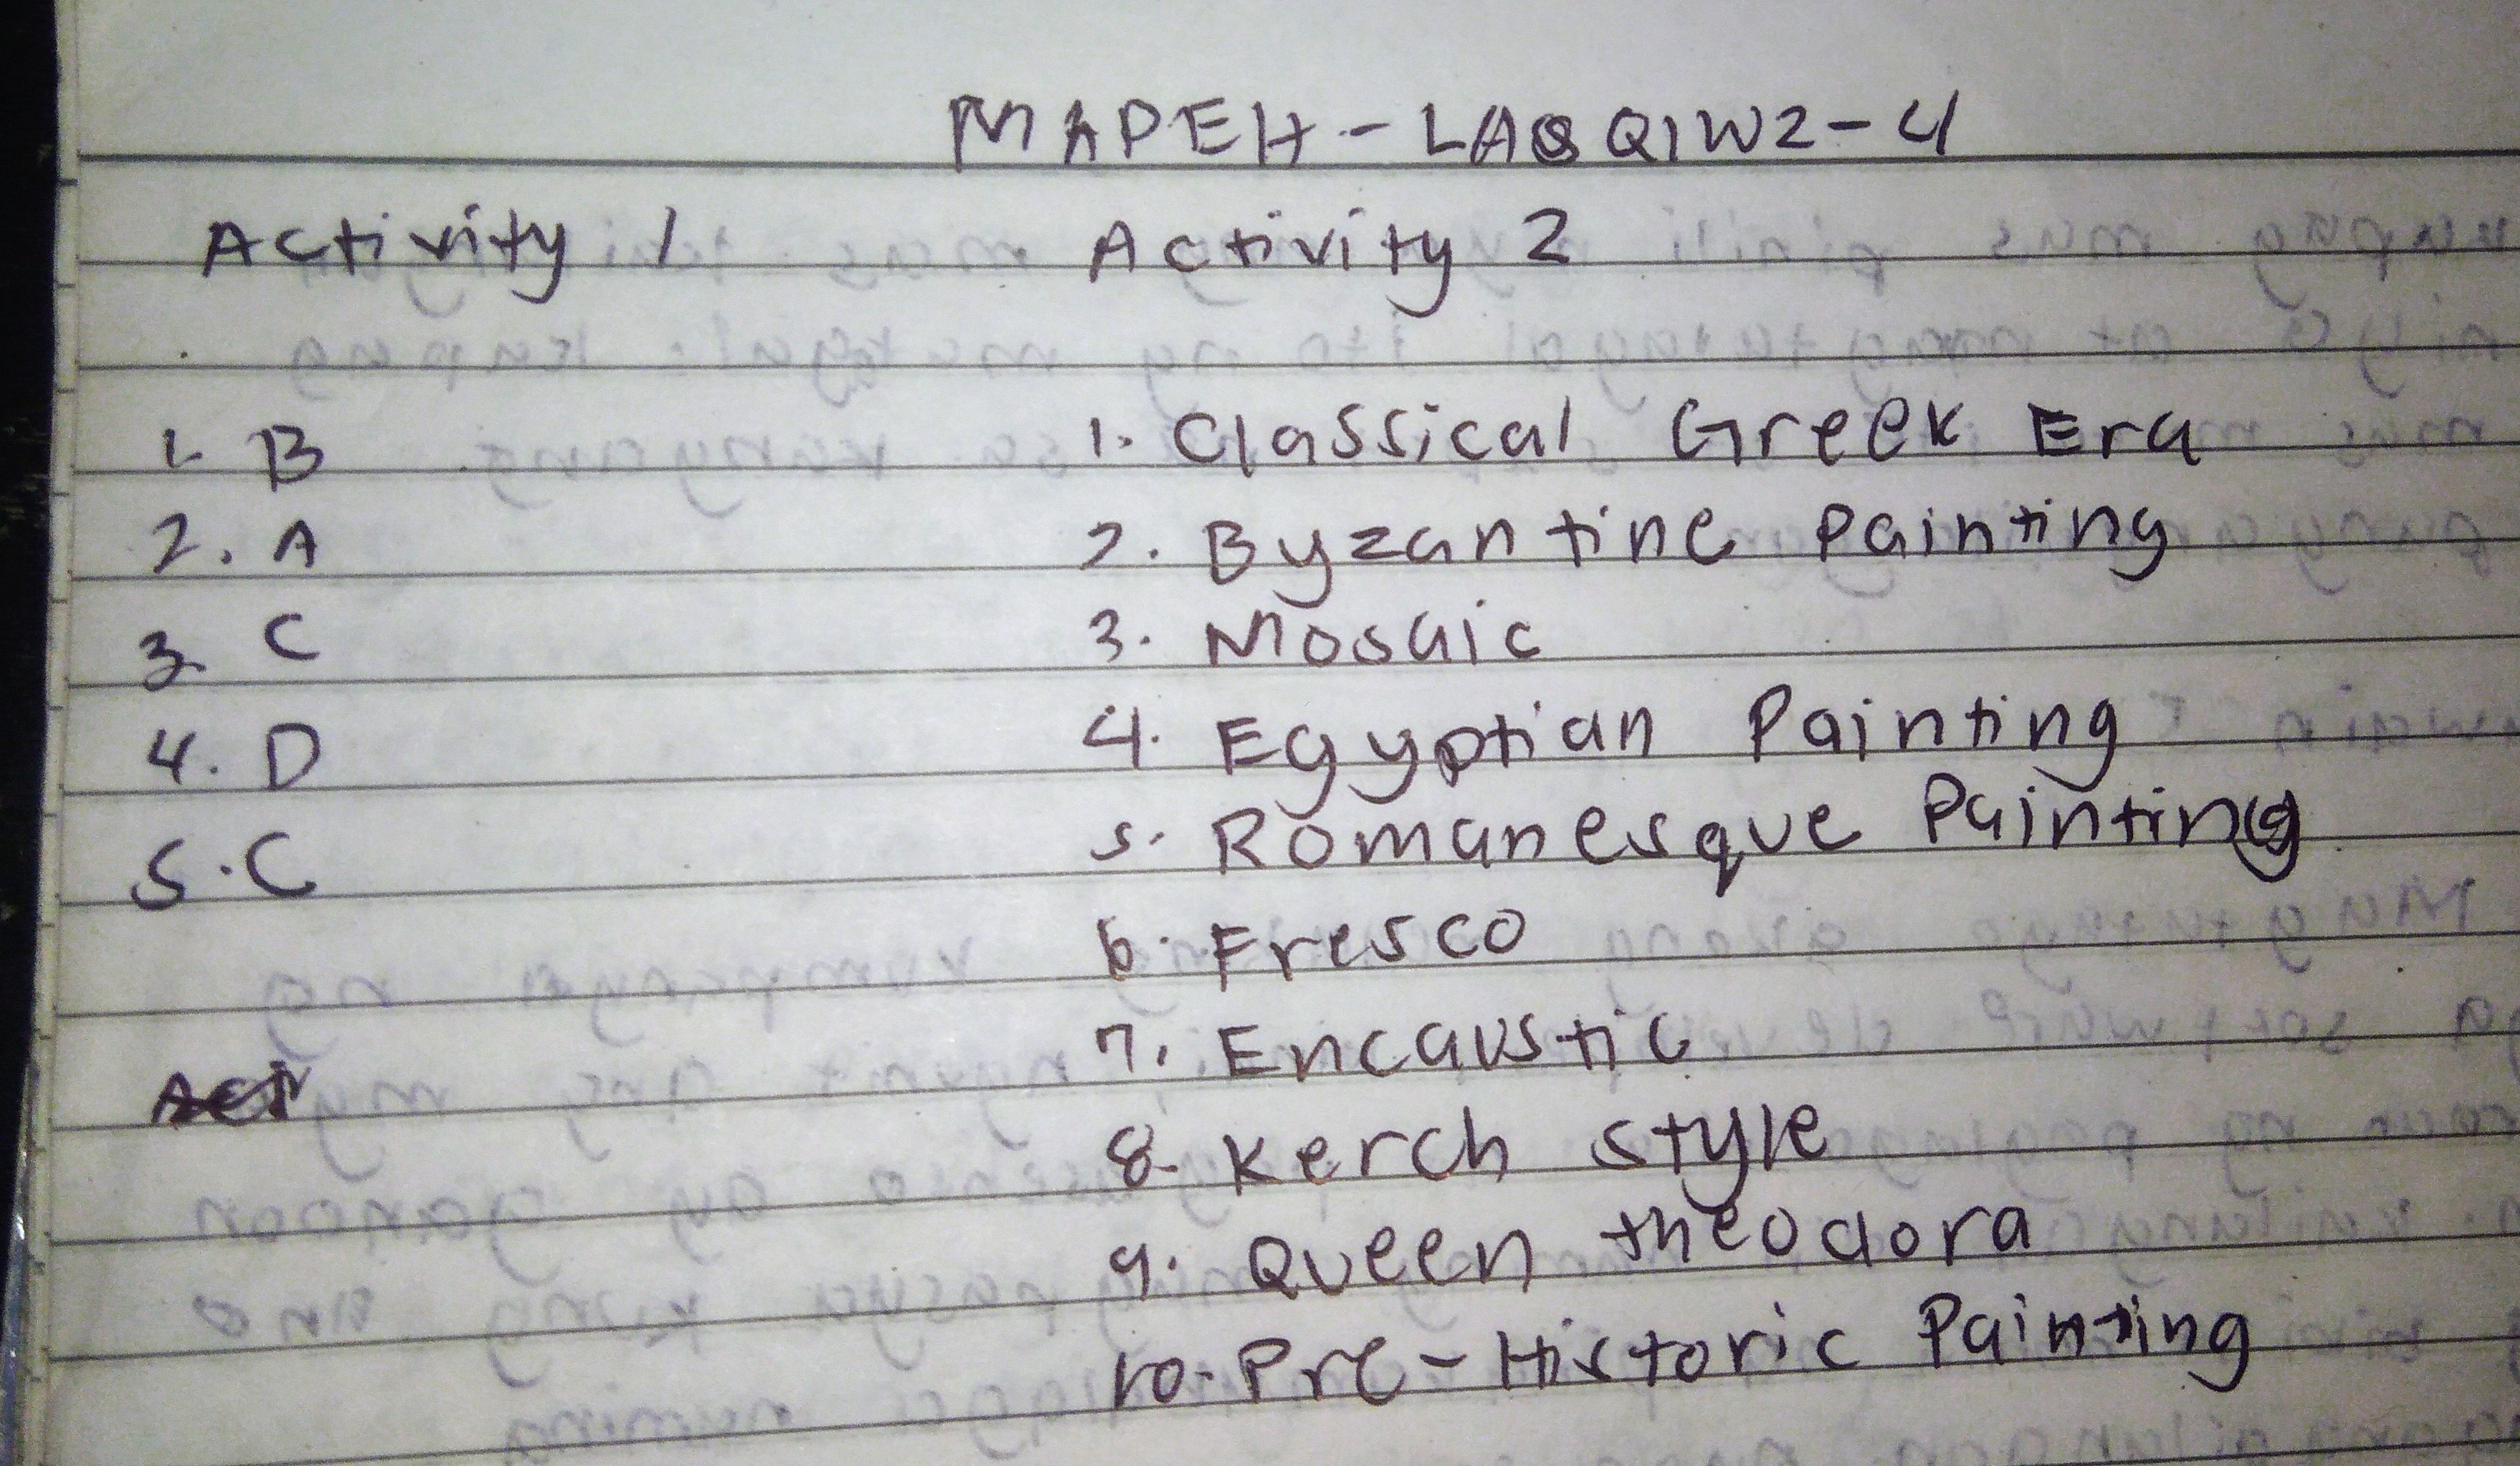 MAPEH - LAS Q1W2-4
Activity 1
1. B
2. A
3. C
4. D
5. C
Activity 2
1. Classical Greek Era
2. Byzantine Painting
3. Mosaic
4. Egyptian Painting
5. Romanesque Painting
6. Fresco
7. Encaustic
8. Kerch style
9. Queen theodora
10. Pre-Historic Painting